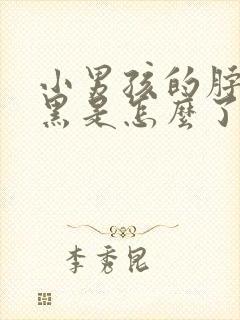 小男孩的脖
黑是怎麼了
李秀昆